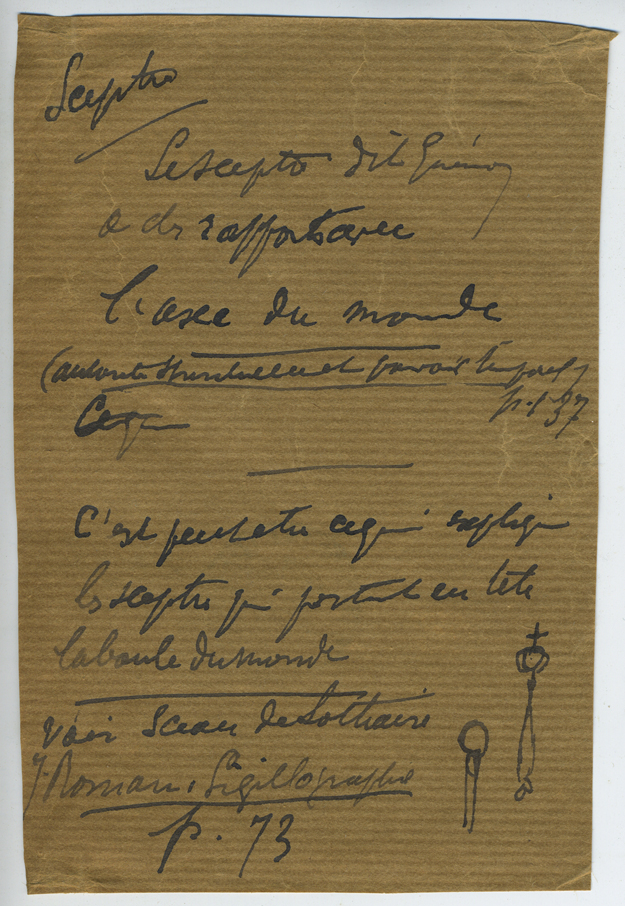 Sceptre
Le sceptre dit Guénon
a des rapports avec
l'axe du monde
(autorité spirituelle et pouvoir temporel
p. 137
Ce qu
C'est peut etre ce qui explique
les sceptres qui portent en tete
la boule du monde
voir Sceau de Lothaire
J. Roman, Sigillographie
p. 73